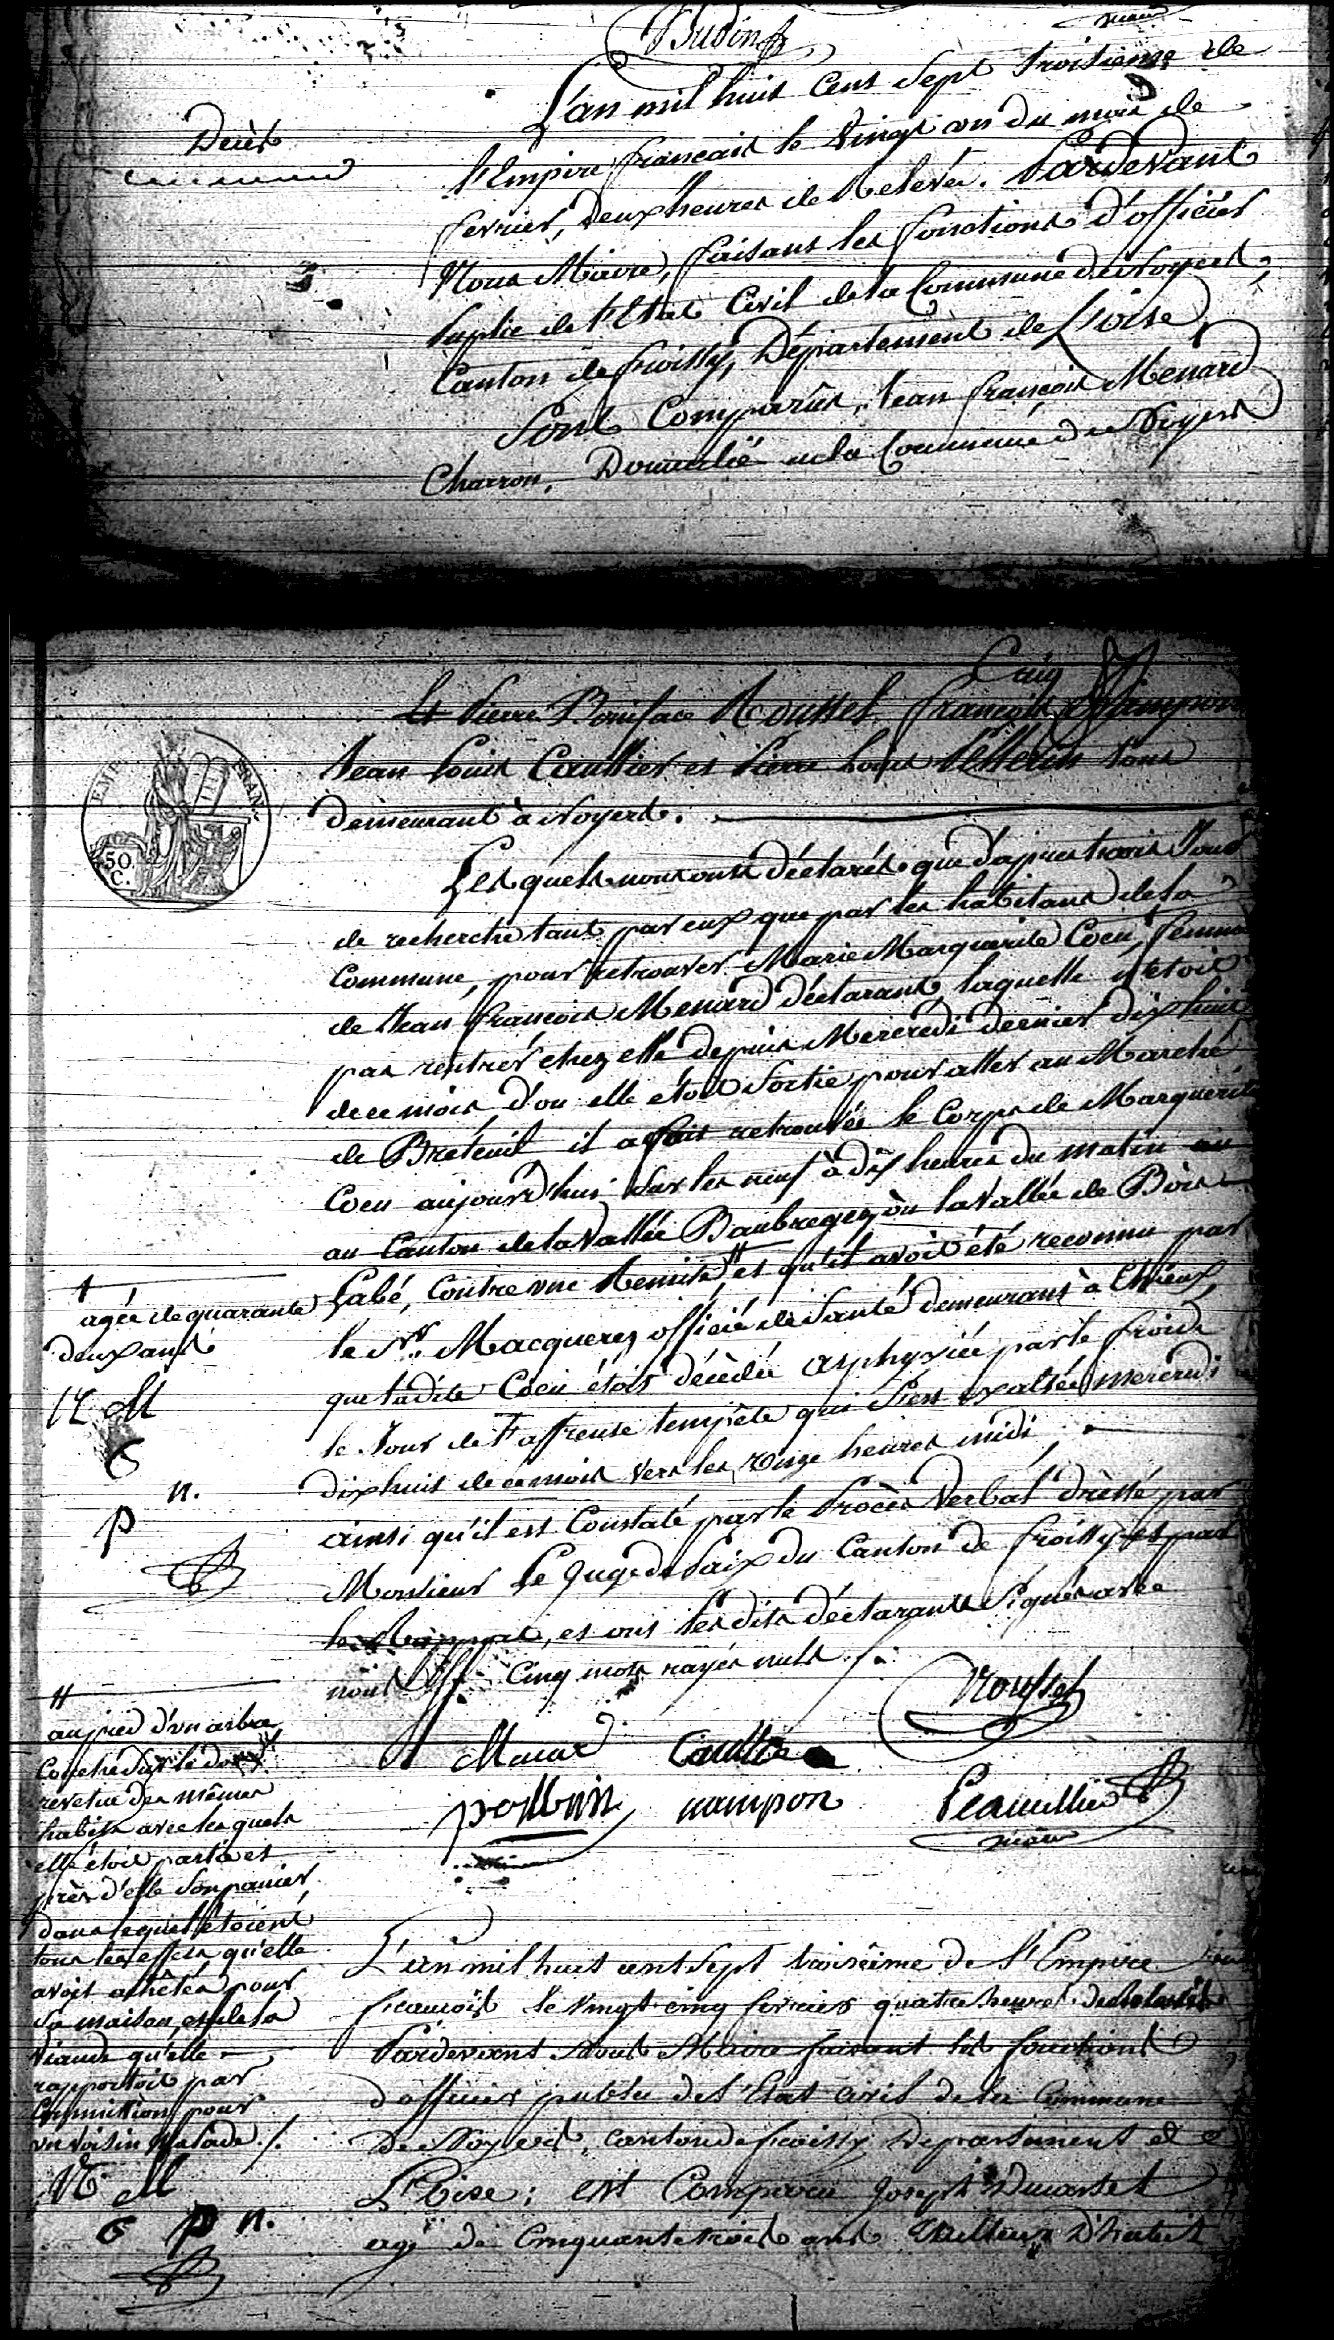 Budin
maire
Décès
L'an mil huit Cent Sept troisieme de
l'Empire francais le vingt un du mois de
fevrier, deux heures de Relevée. Pardevant
Nous Maire, faisant les fonctions d'officier
Public de l'Etat Civil de la Commune de Noyers,
Canton de froissy, Département de L'oise
Sont Comparûs, Jean françois Menard
Charron, Domicilié en la Commune de Noyers
Cinq
Et Pierre Boniface Roussel, françois Nampon
Jean Louis Caullier et Pierre Louis Pellerin tous
demeurant à Noyers.
EMP. FRAN.
50
C.
Lesquels nous ont déclarés que d'après trois Jours
de recherche tant par eux que par les habitans de la
Commune, pour retrouver Marie Marguerite Coeu, femme
de Jean françois Menard déclarant, laquelle n'etoit
pas rentrer chez elle depuis Mercredi dernier dix huit
de ce mois, d'ou elle étoit Sortie pour aller au Marché
de Breteuil, il a fait retrouvée le Corps de Marguerite
Coeu aujourd'hui, Sur les neuf à dix heures du matin au
au Canton de la Vallée Baubregez, ou la Vallée de Bois
Labé, Contre une Remise, et qu'il avoit été reconnu par
le Sr. Macquerez officié de Santé demeurant à Thieux,
que ladite Coeu étois décédée asphyxiée par le froid
le Jour de l'affreuse tempête qui S'est exaltée mercredi
dix huit de ce mois vers les onze heures midi
ainsi qu'il est Constaté par le Procès Verbal dressé par
Monsieur Le Juge de Paix du Canton de froissy et par
, et ont lesdits déclarants Signés avec
nous Cinq mots rayés nuls
agée de quarante
deux ans
R M
C
P n.
Roussel
Menard Caullier
pellerin nampon
maire
au pied d'un arbre
Couchée sur le dos
revetue des mêmes
habits avec lesquels
elle étoit partie et
près d'elle Son panier
dans lequel étoient
tous les effets qu'elle
avoit achêtés pour
Sa maison, et de la
viande qu'elle
rapportoit par
Commission pour
un voisin Malade
R M
C P n.
L'an mil huit cent Sept troisième de l'Empire
francois le vingt cinq fevrier quatre heures de
Pardevant Nous Maire faisant les fonctions
d'officier public de l'Etat civil de la Commune
de Noyers, canton de froissy Departement de
L'Oise; est Comparu Joseph
agé de Cinquante trois ans Tailleur D'habit